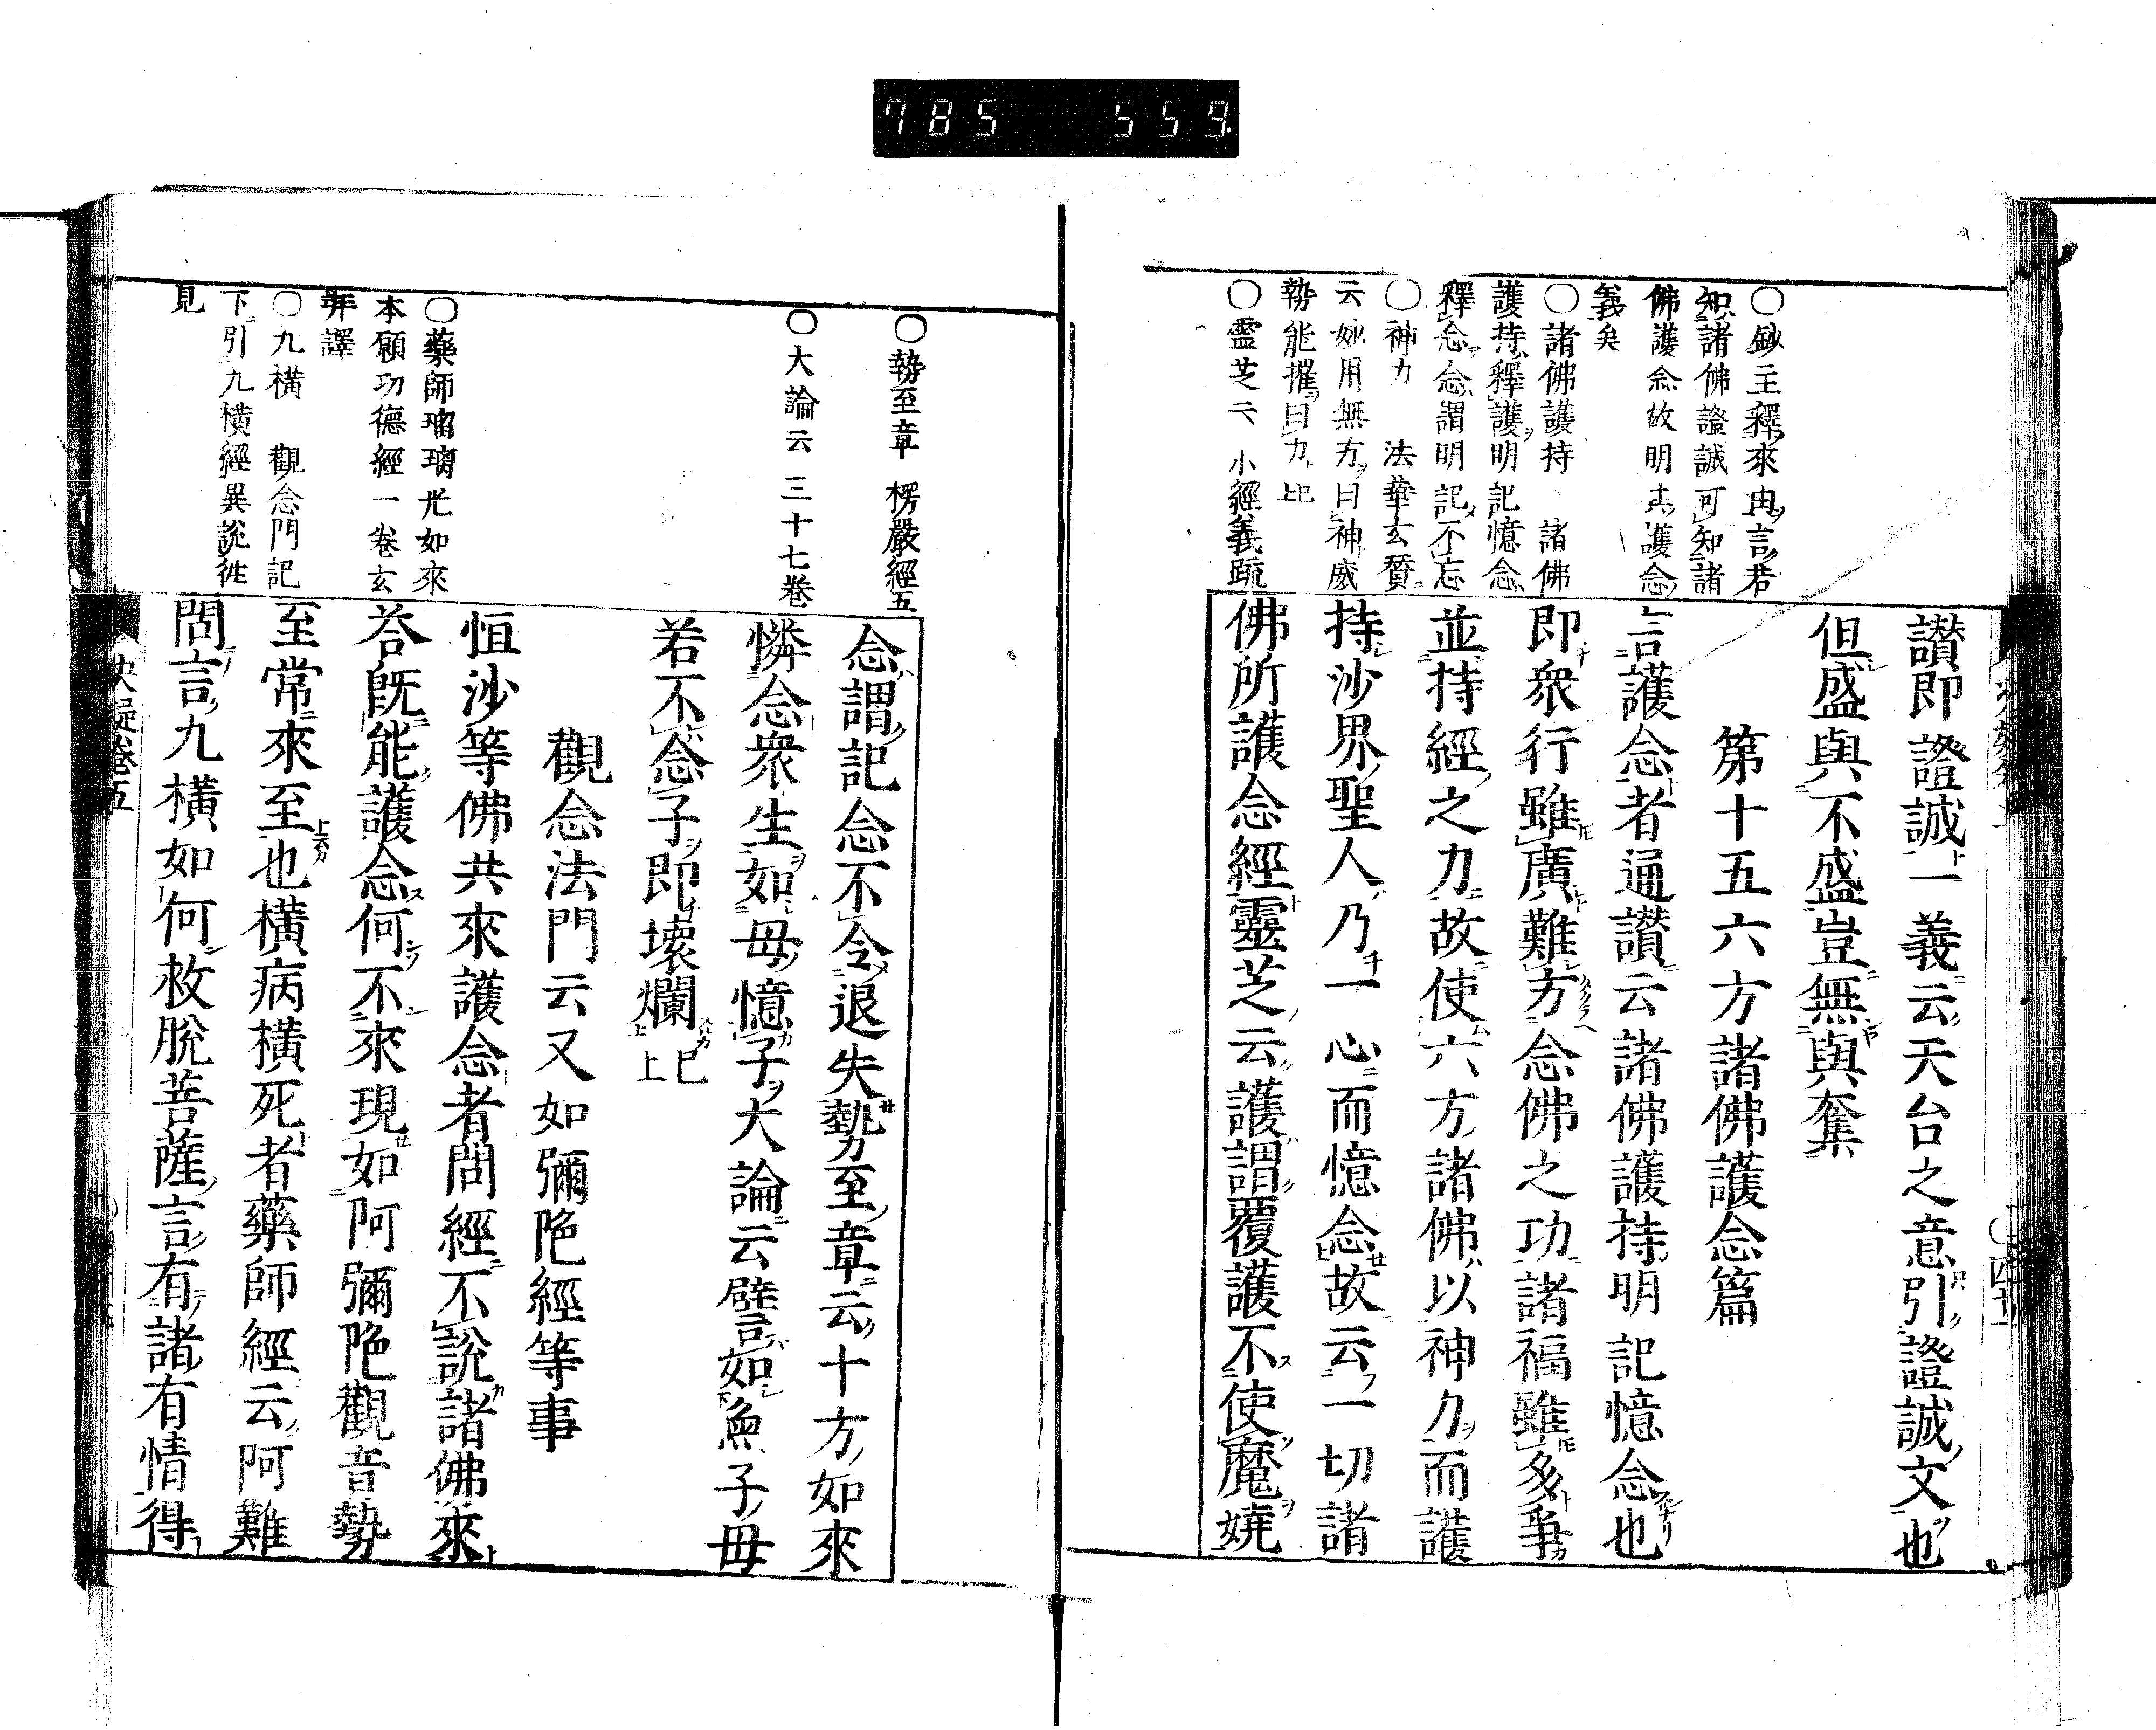 785 559
〇鈔主釋來由言若
知諸佛證誠可知諸
佛護念故明其護念
義矣
〇諸佛護持 諸佛
護持釋護明記憶念
釋念念謂明記不忘
〇神力 法華玄贊
云妙用無方曰神威
勢能摧曰力上已
〇靈芝云 小經義疏
讃即證誠一義云天台之意引證誠文也
但盛與不盛豈無與奪
第十五六方諸佛護念篇
言護念者通讃云諸佛護持明記憶念也
即衆行雖廣難方念佛之功諸福雖多爭
並持經之力故使六方諸佛以神力而護
持沙界聖人乃一心而憶念故云一切諸
佛所護念經靈芝云護謂覆護不使魔嬈
〇勢至章 楞嚴經五
〇大論云 三十七卷
〇藥師瑠璃光如來
本願功德經一卷玄
奘譯
〇九横 觀念門記
下引九横經異説徃
見
念謂記念不令退失勢至章云十方如來
憐念衆生如母憶子大論云譬如魚子母
若不念子即壞爛已上
觀念法門云又如彌陀經等事
恒沙等佛共來護念者問經不說諸佛來
荅既能護念何不來現如阿彌陀觀音勢
至常來至也横病横死者藥師經云阿難
問言九横如何救脫菩薩言有諸有情得
決疑卷五